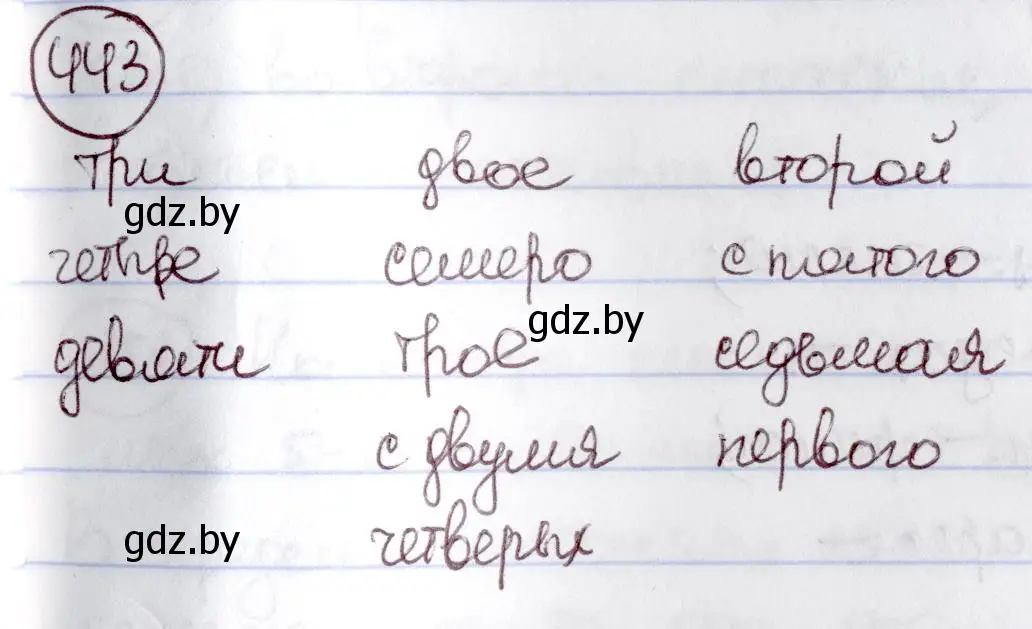 443
три двое второй
gdz.by
четыре семеро с пятого
gdz.by
девяти трое седьмая
с двумя первого
gdz.by четверых